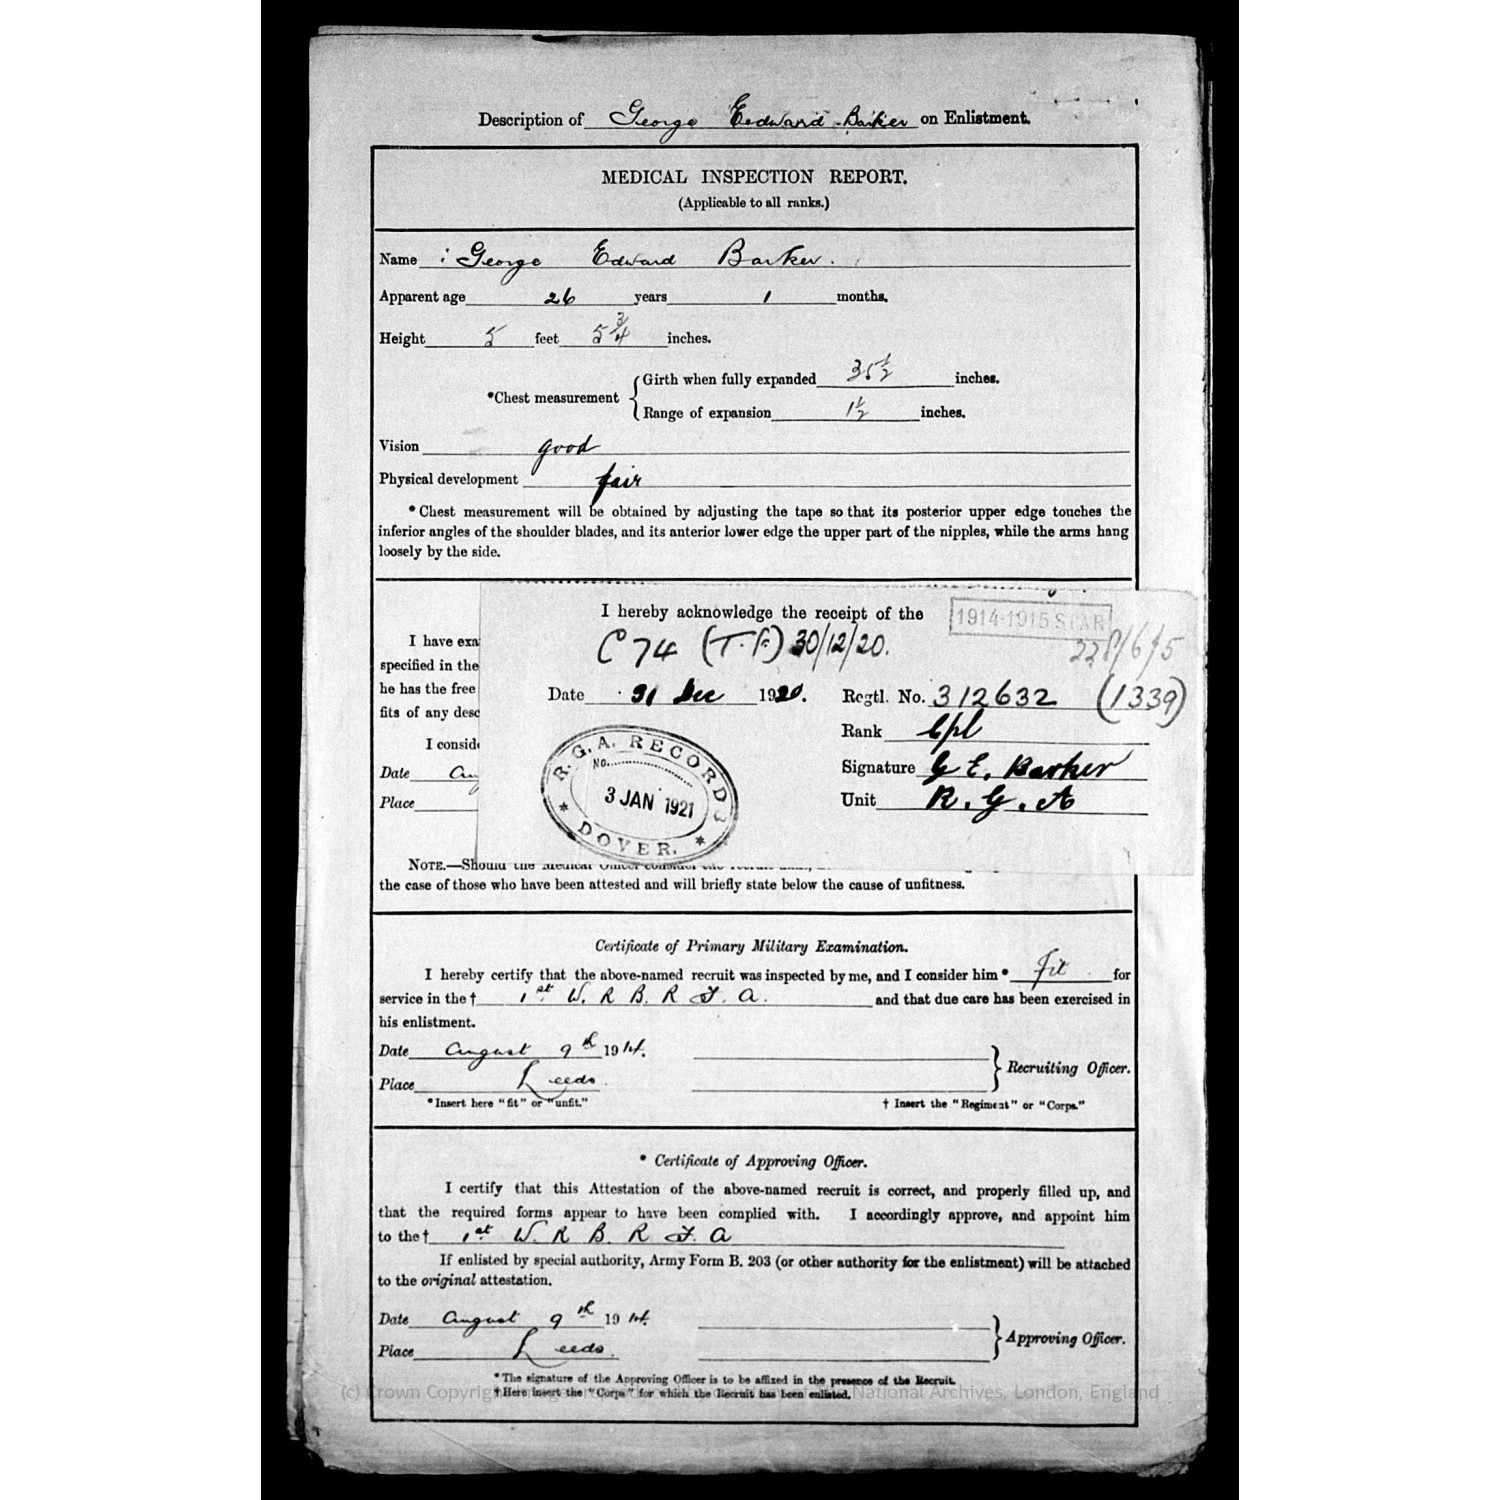 Description of George Eedward Barker on Enlistment.
MEDICAL INSPECTION REPORT.
(Applicable to all ranks.)
Name George Edward Barker.
Apparent age 26 years 1 months.
Height 5 feet 5 3/4 inches.
*Chest measurement { Girth when fully expanded 35 1/2 inches.
Range of expansion 1 1/2 inches.
Vision good
Physical development fair
* Chest measurement will be obtained by adjusting the tape so that its posterior upper edge touches the
inferior angles of the shoulder blades, and its anterior lower edge the upper part of the nipples, while the arms hang
loosely by the side.
I hereby acknowledge the receipt of the
1914-1915 STAR
C 74 (T.F.) 30/12/20.
228/6/5
Date 31 Dec 1920.
Regtl. No. 312632 (1339)
Rank Cpl
Signature G E. Barker
Unit R. G. A
R.G.A. RECORDS
No.
3 JAN 1921
* DOVER. *
I have exa
specified in the
he has the free
fits of any desc
I consid
Date
Place
NOTE.—Should the Medical Officer consider the recruit
the case of those who have been attested and will briefly state below the cause of unfitness.
Certificate of Primary Military Examination.
I hereby certify that the above-named recruit was inspected by me, and I consider him * Fit for
service in the † 1st W. R B. R F. A. and that due care has been exercised in
his enlistment.
Date August 9th 1914.
Place Leeds.
} Recruiting Officer.
* Insert here "fit" or "unfit."
† Insert the "Regiment" or "Corps."
* Certificate of Approving Officer.
I certify that this Attestation of the above-named recruit is correct, and properly filled up, and
that the required forms appear to have been complied with. I accordingly approve, and appoint him
to the † 1st W. R B. R F. A
If enlisted by special authority, Army Form B. 203 (or other authority for the enlistment) will be attached
to the original attestation.
Date August 9th 1914.
Place Leeds.
} Approving Officer.
* The signature of the Approving Officer is to be affixed in the presence of the Recruit.
† Here insert the "Corps" for which the Recruit has been enlisted.
(c) Crown Copyright National Archives, London, England